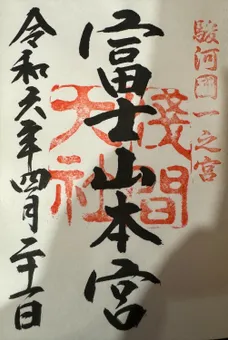 駿河国一之宮
富士山本宮
浅間大社
令和六年四月二十一日